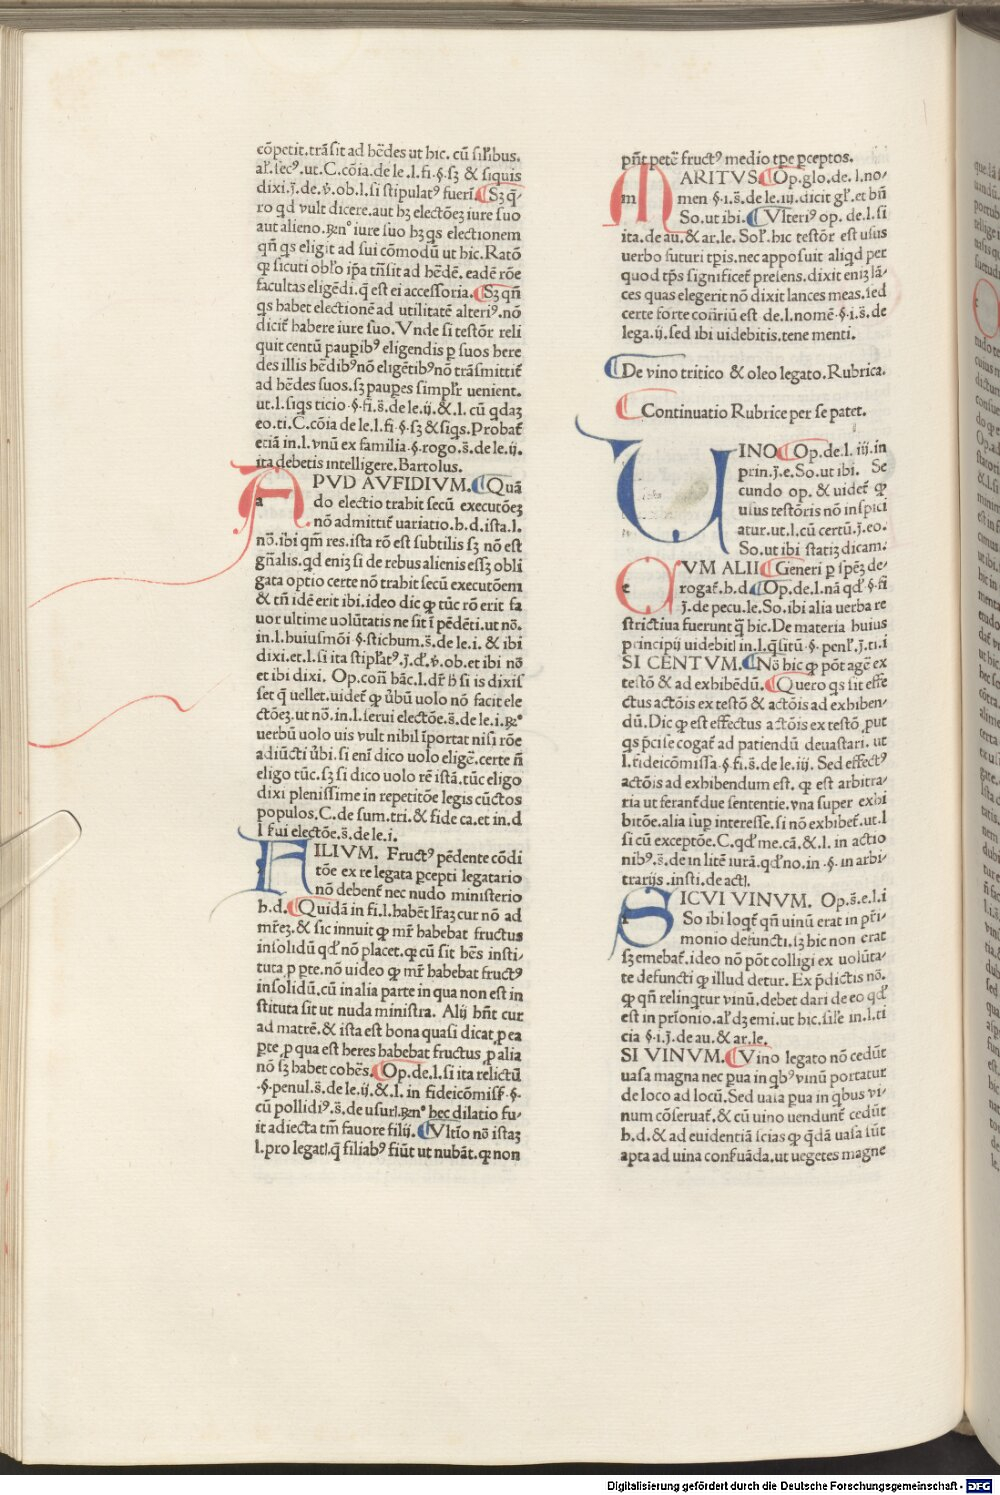 cōpetit.trāsit ad hēdes ut hic. cū sil'ibus.
al'.secꝰ.ut.C.cōia.de le.l.fi.§.sꝫ & siquis
dixi.j̄.de.v̄.ob.l.si stipulatꝰ fuerī. Sꝫ q̄
ro qd vult dicere.aut hꝫ electōeꝫ iure suo
aut alieno. iure suo hꝫ qs electionem
qn̄ qs eligit ad sui cōmodū ut hic. Ratō
qꝫ sicuti obl'o ip̄a trāsit ad hēdē. eadē rōe
facultas eligēdi.q̄ est ei accessoria. Sꝫ qn̄
qs habet electionē ad utilitatē alteriꝰ.nō
dicit̄ habere iure suo.Vnde si testōr reli
quit centū paupibꝰ eligendis p suos here
des illis hēdibꝰ nō eligētibꝰ nō trāsmittit̄
ad hēdes suos.sꝫ paupes simpl'r uenient.
ut.l.siqs ticio.§.fi.s̄.de le.ij.&.l. cū qdaꝫ
eo.ti.C.cōia de le.l.fi.§.sꝫ & siqs.Probat̄
etiā in.l.vnū ex familia.§.rogo.s̄.de le.ij.
ita debetis intelligere.Bartolus.
APVD AVFIDIVM. Quā
do electio trahit secū executōeꝫ
nō admittit̄ uariatio.h.d.ista.l.
nō.ibi qm̄ res.ista rō est subtilis sꝫ nō est
gn̄alis.qd eniꝫ si de rebus alienis essꝫ obli
gata optio certe nō trahit secū executōem
& tn̄ idē erit ibi.ideo dic qꝫ tūc rō erit fa
uor ultime uolūtatis ne sit ī pēdēti.ut nō.
in.l.huiusmōi.§.stichum.s̄.de le.i. & ibi
dixi.et.l.si ita stipl'atꝰ.j̄.d'.v̄.ob.et ibi nō
et ibi dixi. Op.con̄ hāc.l.dr̄ h̄ si is dixis
set q̄ uellet.uidet̄ qꝫ ūbū uolo nō facit ele
ctōeꝫ.ut nō.in.l.serui electōe.s̄.de le.i.
uerbū uolo uis vult nihil īportat nisi rōe
adiūcti ūbi.si eni dico uolo eligē.certe n̄
eligo tūc.sꝫ si dico uolo rē istā.tūc eligo
dixi plenissime in repetitōe legis cūctos
populos.C.de sum.tri.& fide ca.et in.d
l sui electōe.s̄.de le.i.
FILIVM. Fructꝰ pēdente cōdi
tōe ex re legata pcepti legatario
nō debent̄ nec nudo ministerio
h.d. Quidā in fi.l.habēt lr̄aꝫ cur nō ad
mr̄eꝫ.& sic innuit qꝫ mr̄ habebat fructus
insolidū qd' nō placet.qꝫ cū sit hēs insti/
tuta p pte.nō uideo qꝫ mr̄ habebat fructꝰ
insolidū.cū in alia parte in qua non est in
stituta sit ut nuda ministra. Alij hn̄t cur
ad matrē.& ista est bona quasi dicat,p ea
pte,p qua est heres habebat fructus ,p alia
nō sꝫ habet cohēs. Op.de.l.si ita relictū
.§.penul.s̄.de le.ij.&.l.in fideicōmiss̄.§.
cū pollidiꝰ.s̄.de usur. hec dilatio fu/
it adiecta tm̄ fauore filij. Vltīo nō istaꝫ
l.pro legat.q̄ filiabꝰ fiūt ut nubāt.qꝫ non
pn̄t petē fructꝰ medio tpe pceptos.
MARITVS. Op.glo.de.l.no/
m
men §.i.s̄.de le.iij.dicit gl'.et bn̄
So.ut ibi. Vlteriꝰ op. de.l.si
ita.de au.& ar.le. Sol'.hic testōr est usus
uerbo futuri tpis.nec apposuit aliqd per
quod tps significet̄ presens.dixit eniꝫ lā/
ces quas elegerit nō dixit lances meas.sed
certe forte con̄riū est de.l.nomē.§.i.s̄.de
lega.ij.sed ibi uidebitis.tene menti.
De vino tritico & oleo legato.Rubrica.
Continuatio Rubrice per se patet.
VINO Op.de.l. iij.in
prin.j̄.e.So.ut ibi. Se
cundo op. & uidet̄ qꝫ
usus testōris nō inspici
atur.ut.l.cū certū.j̄.eo.
So.ut ibi statiꝫ dicam.
CVM ALII Generi p spēꝫ de/
c
rogat̄.h.d. Op.de.l.nā qd' §.fi
j̄.de pecu.le.So.ibi alia uerba re
strictiua fuerunt q̄ hic.De materia huius
principij uidebit in.l.q̄sitū.§.penl'.j̄.ti.i
SI CENTVM. Nō hic qꝫ pōt agē ex
testō & ad exhibēdū. Quero qs sit effe
ctus actōis ex testō & actōis ad exhiben/
dū.Dic qꝫ est effectus actōis ex testō ,put
qs p̄cise cogat̄ ad patiendū deuastari. ut
l.fideicōmissa.§.fi.s̄.de le.iij. Sed effectꝰ
actōis ad exhibendum est. qꝫ est arbitra/
ria ut ferant̄ due sententie.vna super exhi
bitōe.alia sup interesse.si nō exhibet̄.ut.l
si cū exceptōe.C.qd' me.cā.&.l. in actio
nibꝰ.s̄.de in litē iurā.qd' no.in.§.in arbi/
trarijs.insti.de act.
SICVI VINVM. Op.s̄.e.l.i
So ibi loqt̄ qn̄ uinū erat in pr̄i/
monio defuncti.sꝫ hic non erat
sꝫ emebat̄.ideo nō pōt colligi ex uolūta/
te defuncti qꝫ illud detur. Ex p̄dictis nō.
qꝫ qn̄ relinqtur vinū.debet dari de eo qd'
est in pr̄onio.al' dꝫ emi.ut hic.sil'e in.l.ti
cia §.i.j̄.de au.& ar.le.
SI VINVM. Vino legato nō cedūt
uasa magna nec pua in qbꝰ vinū portatur
de loco ad locū.Sed uasa pua in qbus vi/
num cōseruat̄.& cū uino uendunt̄ cedūt
h.d.& ad euidentiā scias qꝫ q̄dā uasa sūt
apta ad uina conseruāda.ut uegetes magne
Digitalisierung gefördert durch die Deutsche Forschungsgemeinschaft - DFG